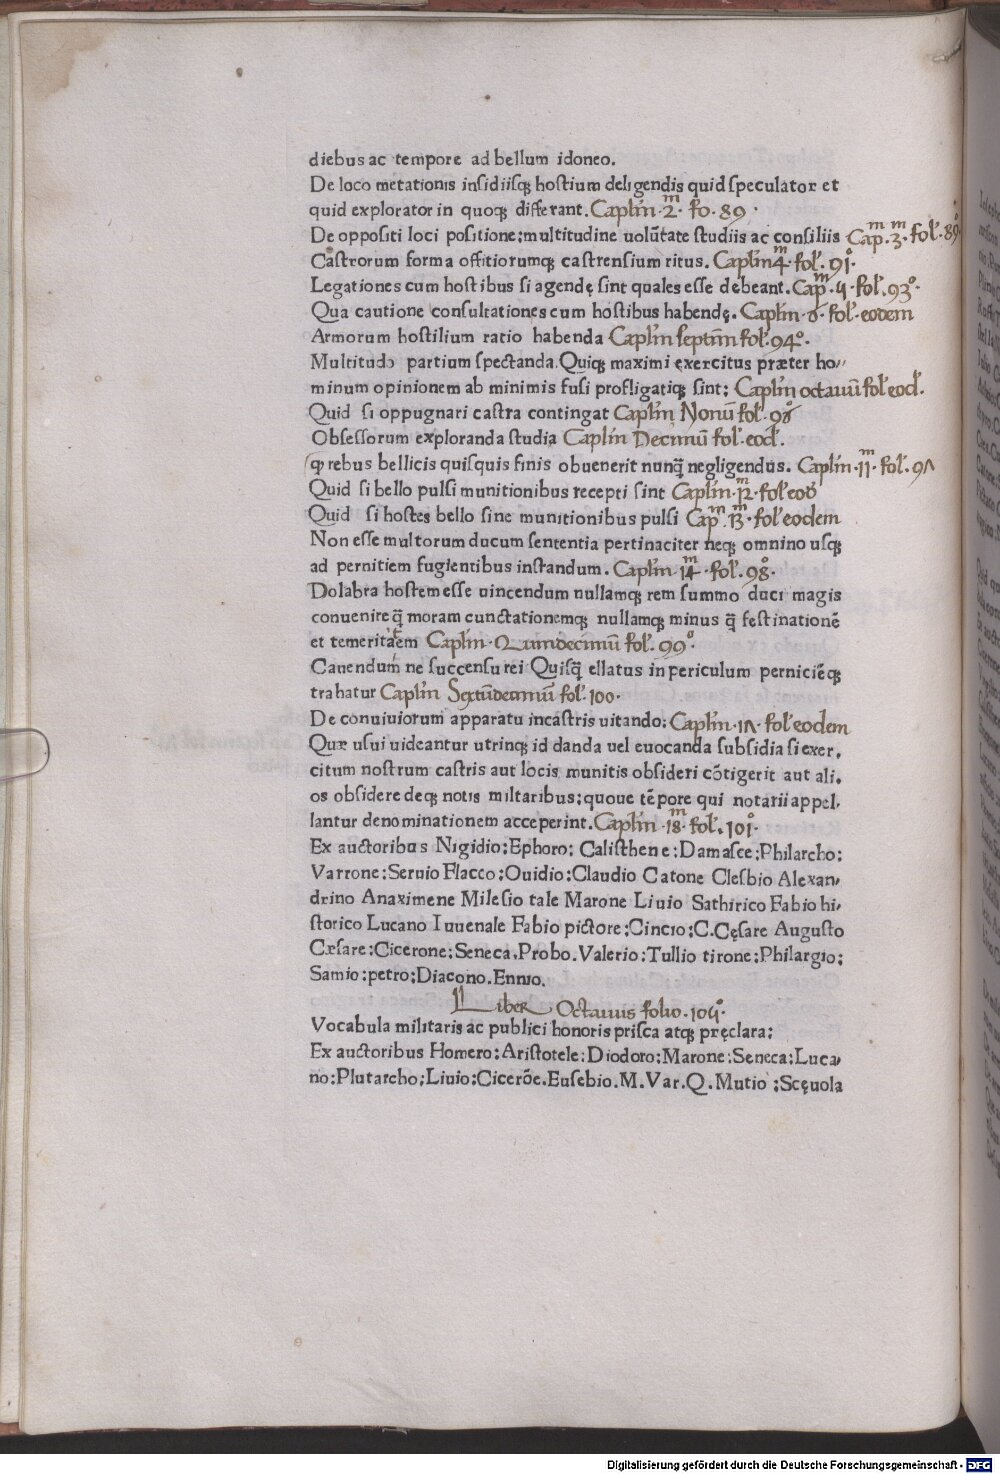 diebus ac tempore ad bellum idoneo.
De loco metationis insidiisqꝫ hostium deligendis quid speculator et
quid explorator in quoqꝫ differant. Caplm̄ · 2ᵐ · fo · 89 ·
De oppositi loci positione: multitudine uolūtate studiis ac consiliis Capᵐ · 3ᵐ · fol. 89°
Castrorum forma offitiorumqꝫ castrensium ritus. Caplm̄ 4ᵐ · fol. 91°.
Legationes cum hostibus si agendę sint quales esse debeant. Capᵐ · 5 · fol. 93°.
Qua cautione consultationes cum hostibus habendę. Caplm̄ · 6 · fol. eodem
Armorum hostilium ratio habenda Caplm̄ septm̄ fol. 94°.
Multitudo partium spectanda. Quiqꝫ maximi exercitus præter ho//
minum opinionem ab minimis fusi profligatiqꝫ sint: Caplm̄ octauū fol. eod.
Quid si oppugnari castra contingat Caplm̄ Nonū fol. 96
Obsessorum exploranda studia Caplm̄ Decimū fol. eod.
ꝙ rebus bellicis quisquis finis obuenerit nunq̄ negligendus. Caplm̄ · 11ᵐ · fol. 97
Quid si bello pulsi munitionibus recepti sint Caplm̄ · 12ᵐ · fol eod
Quid si hostes bello sine munitionibus pulsi Capᵐ · 13ᵐ · fol eodem
Non esse multorum ducum sententia pertinaciter neqꝫ omnino usqꝫ
ad pernitiem fugientibus instandum. Caplm̄ · 14ᵐ · fol. 98°.
Dolabra hostem esse uincendum nullamqꝫ rem summo duci magis
conuenire q̄ moram cunctationemqꝫ nullamqꝫ minus q̄ festinationē
et temeritatem Caplm̄ · Quindecimū fol. 99°.
Cauendum ne succensu rei Quisq̄ ellatus in periculum perniciēqꝫ
trahatur Caplm̄ Sextūdecimū fol. 100 ·
De conuiuiorum apparatu in castris uitando: Caplm̄ · 17 · fol eodem
Quæ usui uideantur utrinqꝫ id danda uel euocanda subsidia si exer,
citum nostrum castris aut locis munitis obsideri cōtigerit aut ali,
os obsidere deqꝫ notis miltaribus: quoue tēpore qui notarii appel,
lantur denominationem acceperint. Caplm̄ · 18ᵐ · fol. 101°.
Ex auctoribus Nigidio: Ephoro: Calisthene: Damasce: Philarcho:
Varrone: Seruio Flacco: Ouidio: Claudio Catone Clesbio Alexan,
drino Anaximene Milesio tale Marone Liuio Sathirico Fabio hi,
storico Lucano Iuuenale Fabio pictore: Cincio: C. Cęsare Augusto
Cæsare: Cicerone: Seneca. Probo. Valerio: Tullio tirone: Philargio:
Samio: petro: Diacono. Ennio.
Liber Octauus folio · 105°.
Vocabula militaris ac publici honoris prisca atqꝫ pręclara:
Ex auctoribus Homero: Aristotele: Diodoro: Marone: Seneca: Luca,
no: Plutarcho: Liuio: Cicerōe. Eusebio. M. Var. Q. Mutio: Scęuola
Digitalisierung gefördert durch die Deutsche Forschungsgemeinschaft - DFG